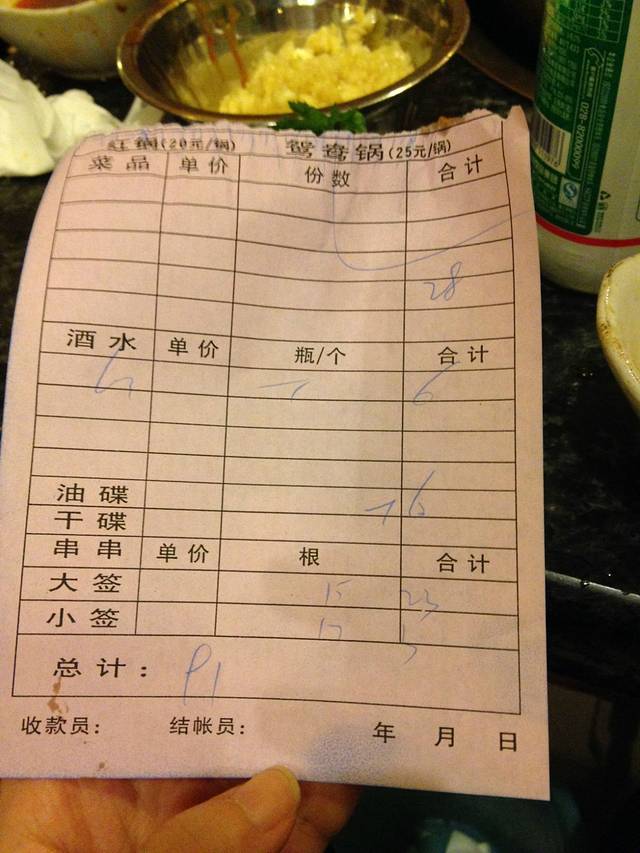 红锅(20元/锅) 鸳鸯锅(25元/锅)
菜品 单价 份数 合计
28
酒水 单价 瓶/个 合计
6
油碟
干碟
串串 单价 根 合计
大签 15 23
小签
总计:
收款员: 结帐员: 年 月 日
028-82000099